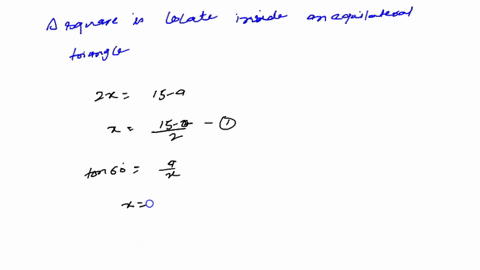 A square is locate inside an equilateral
triangle
2x = 15-a
x = 15-a/2 - ①
tan 60° = a/x
x=0